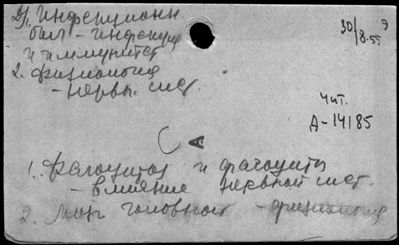 2/1. Инфекционн.
бол. - инфекция
и иммунитет
2. Физиология
- нервн. сист.
30/8.55 э
Чит.
А-14185
А
1. Фагоцитоз и фагоциты
- влияние нервной сист.
2. Мозг головной - физиология